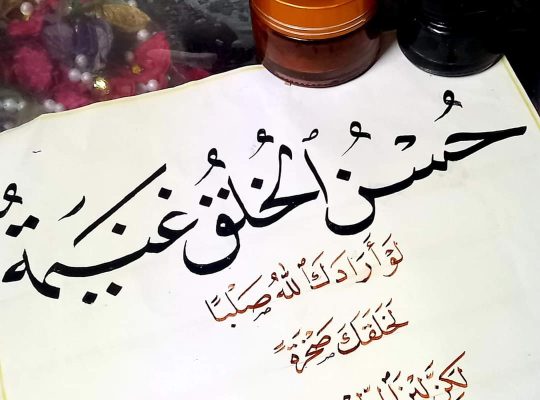 حُسْنُ ٱلْخُلُقِ غَنِيمَةٌ
لَوْ أَرَادَكَ ٱللّٰهُ صَلْبًا
لَخَلَقَكَ صَخْرَةً
لَكِنْ